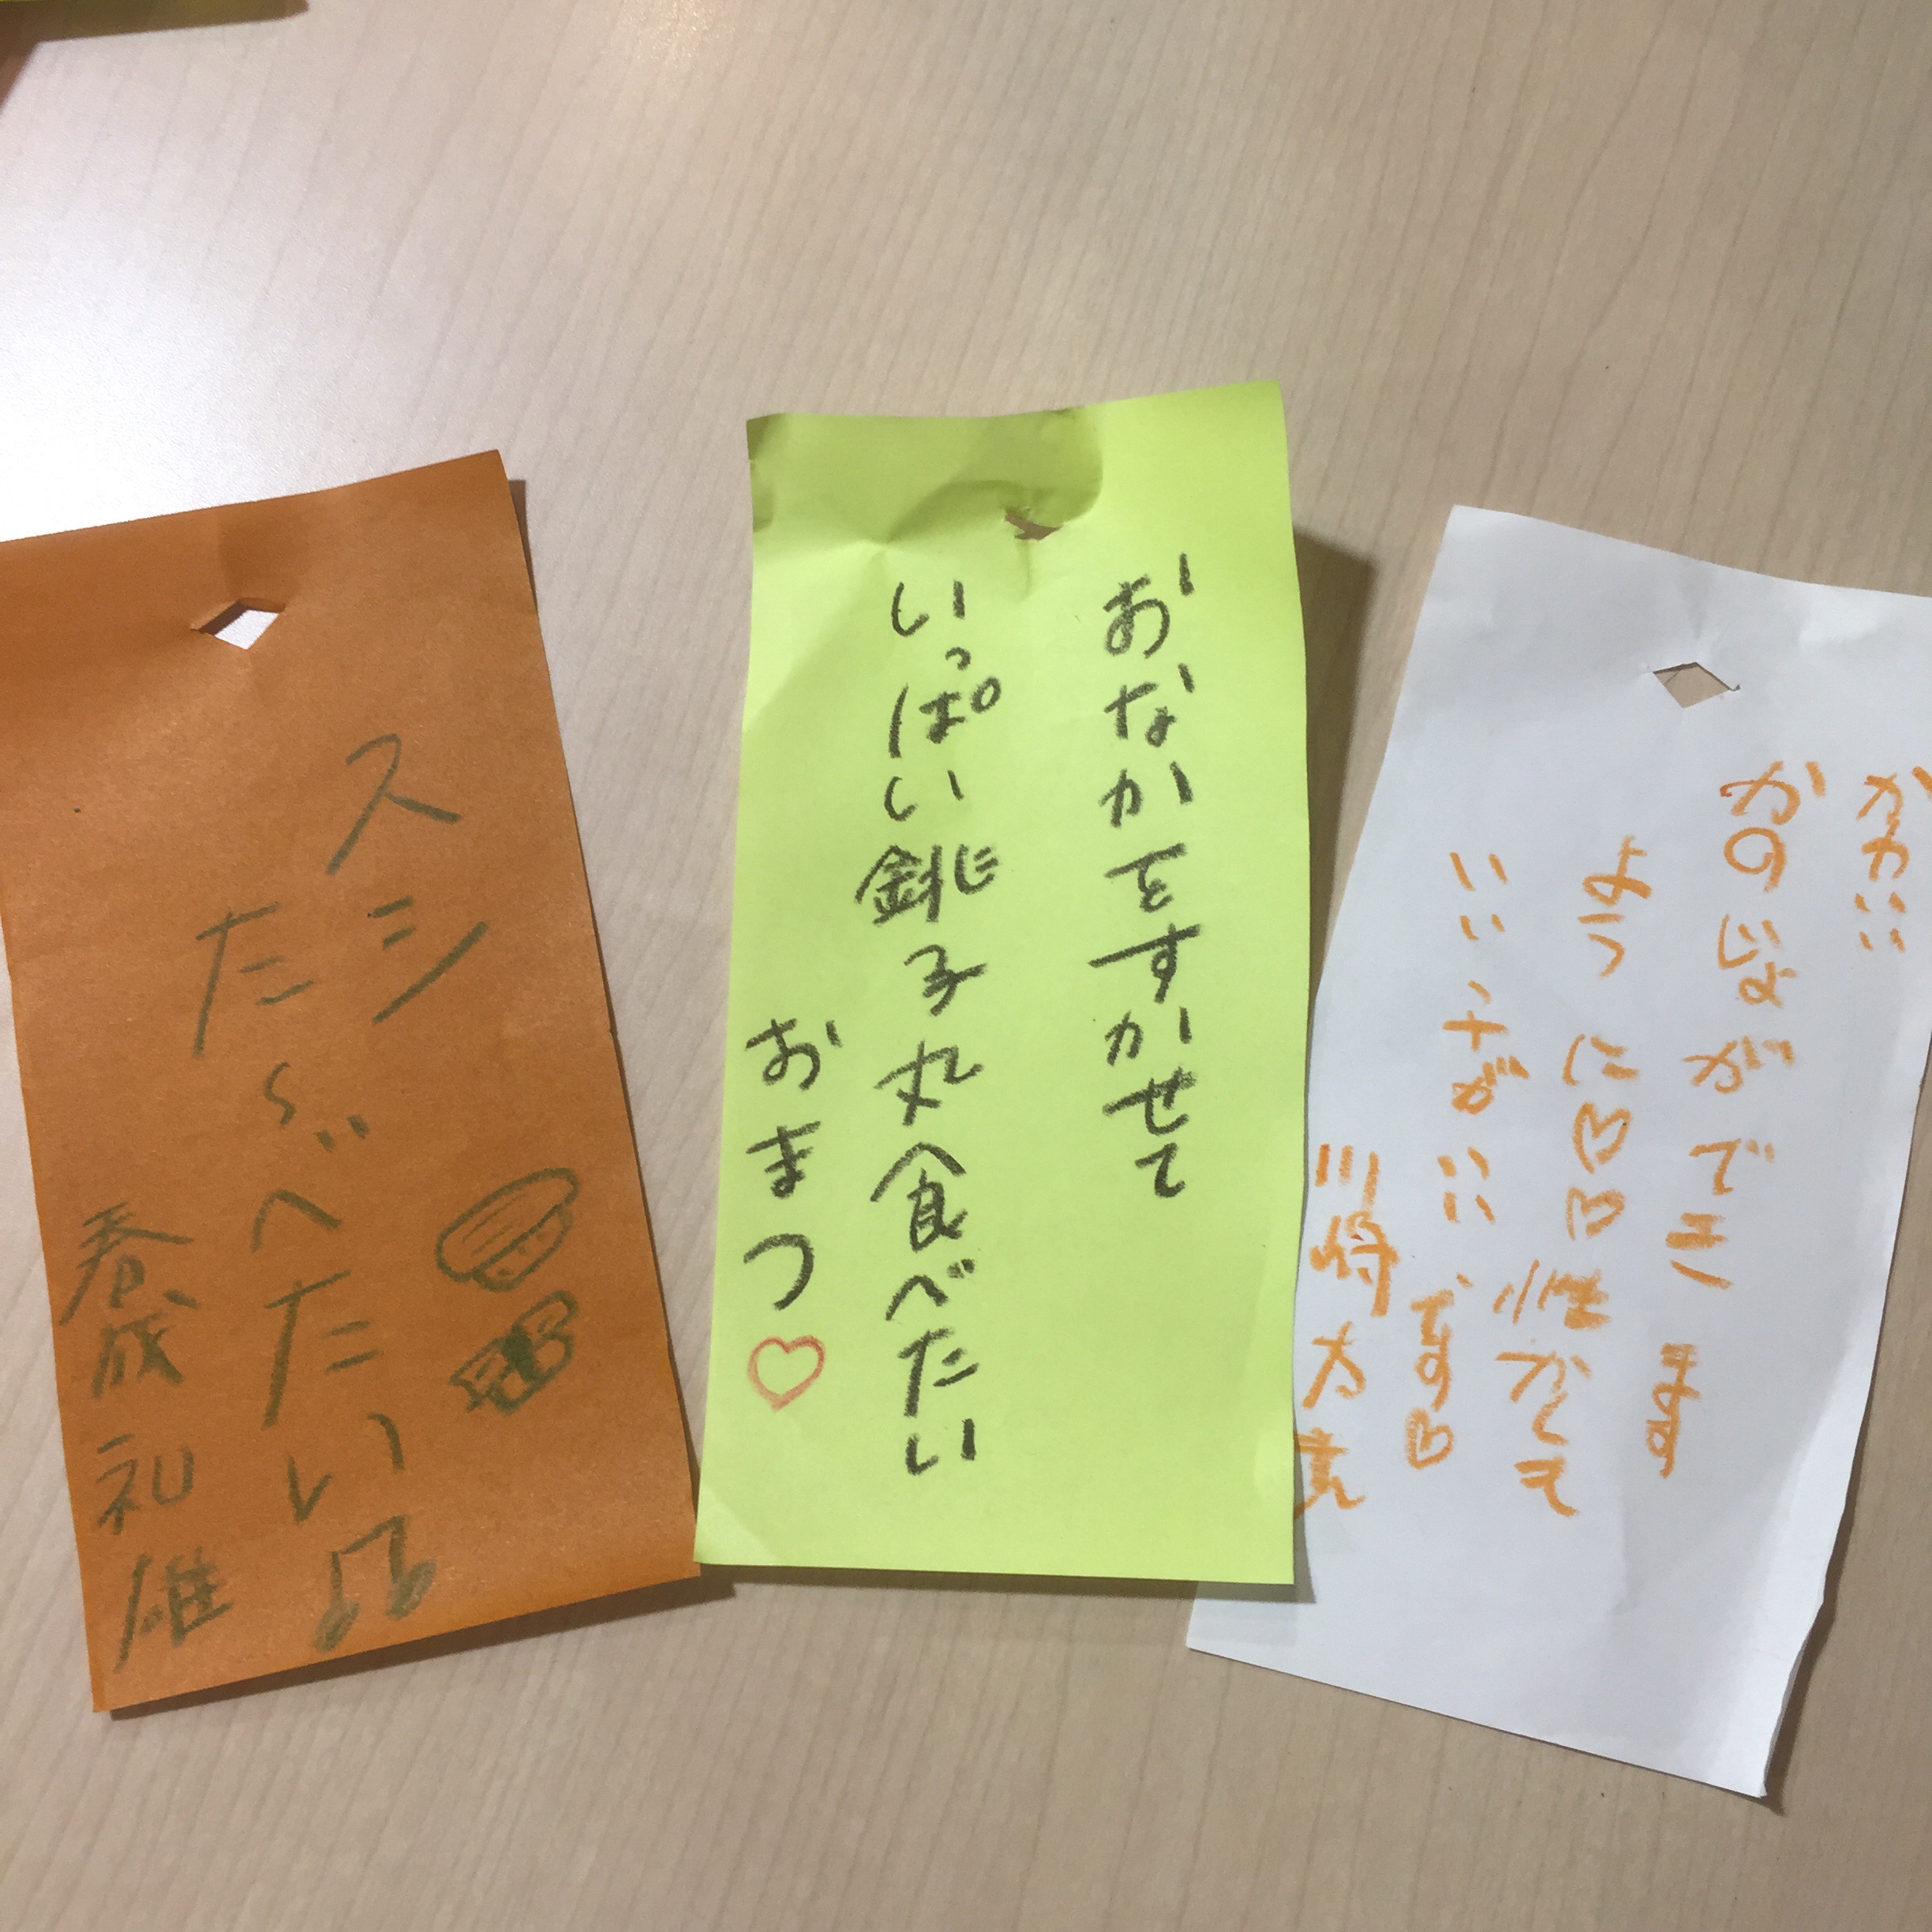 かわいい
かのじょができます
ように♡♡性かくも
いい子がいいです♡
川崎
おなかをすかせて
いっぱい銚子丸食べたい
おまつ♡
スシ
た〜べたい♫
春成礼雄